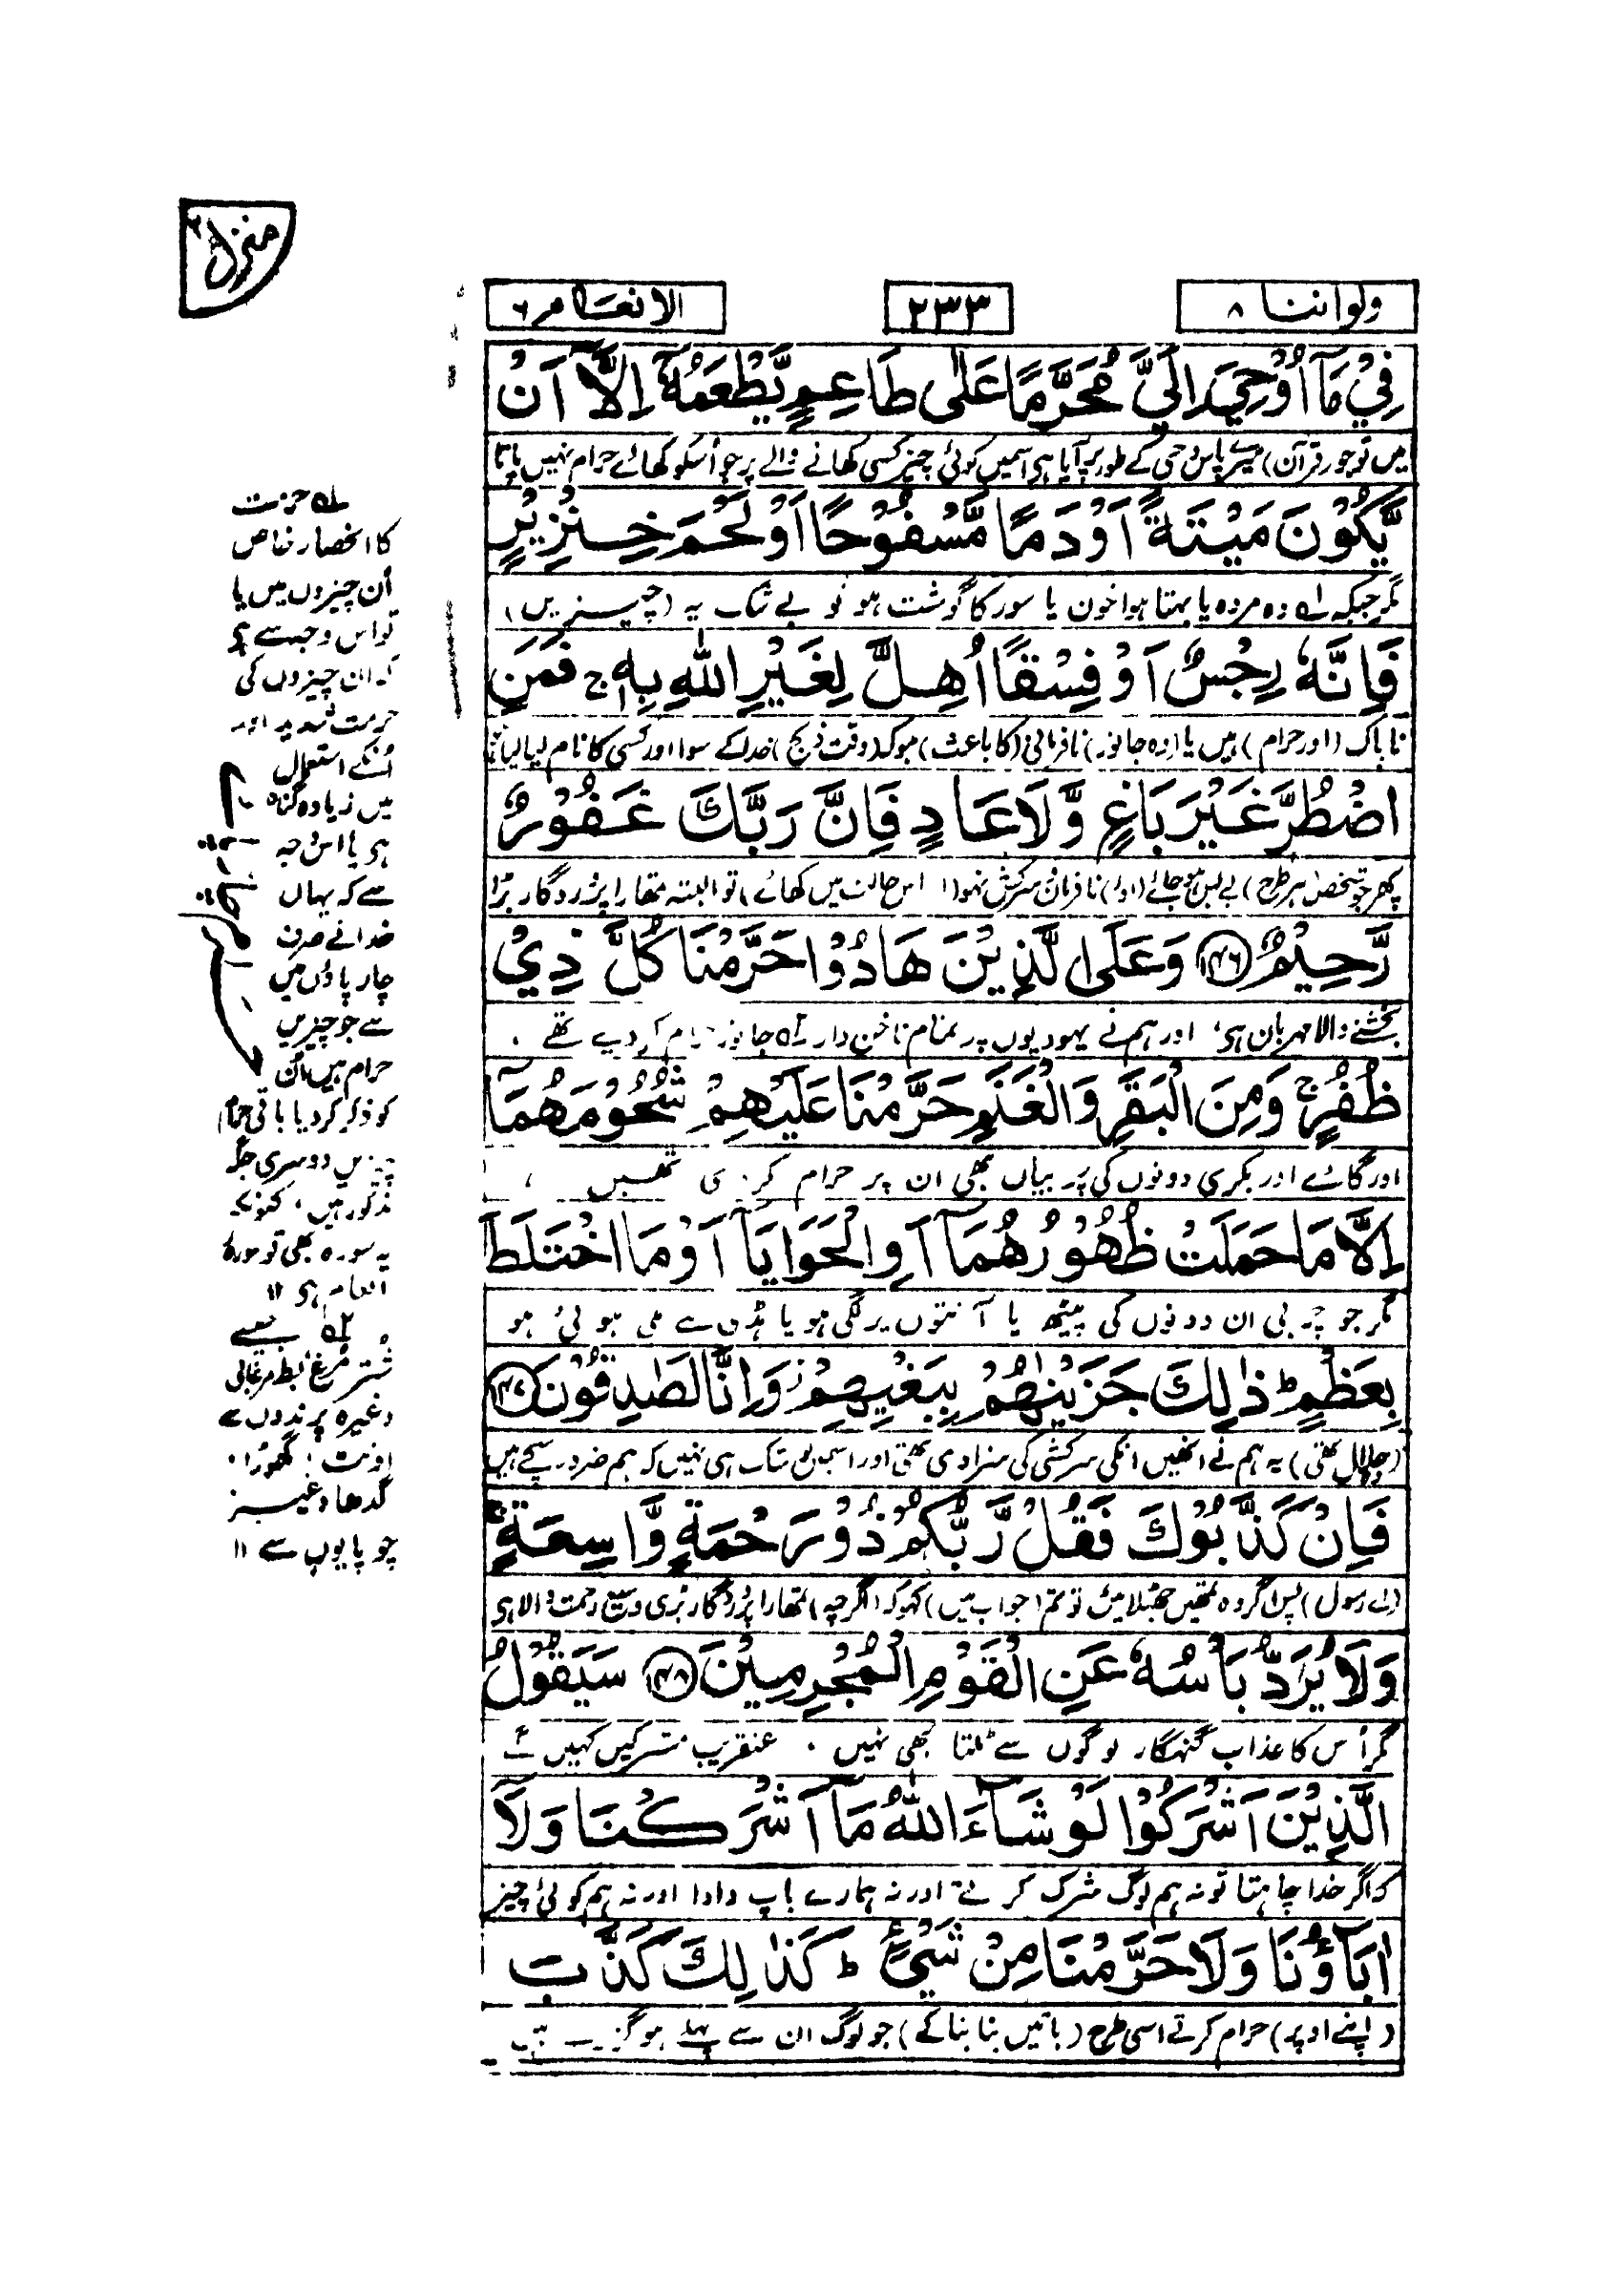 منزل ۲
ولواننا ۸
۲۳۳
الانعام ۶
فِيْ مَآ اُوْحِيَ اِلَيَّ مُحَرَّمًا عَلٰى طَاعِمٍ يَّطْعَمُهٗٓ اِلَّآ اَنْ
میں تو جو (قرآن) میرے پاس وحی کے طور پر آیا ہی اسمیں کوئی چیز کسی کھانے والے پر جو اُسکو کھائے حرام نہیں پاتا
يَّكُوْنَ مَيْتَةً اَوْ دَمًا مَّسْفُوْحًا اَوْ لَحْمَ خِنْزِيْرٍ
مگر جبکہ لہ وہ مردہ یا بہتا ہوا خون یا سور کا گوشت ہو تو بے شک یہ (چیزیں)
فَاِنَّهٗ رِجْسٌ اَوْ فِسْقًا اُهِلَّ لِغَيْرِ اللّٰهِ بِهٖ ج فَمَنِ
ناپاک (اور حرام) ہیں یا (وہ جانور) نافرمانی (کا باعث) ہو کہ (وقت ذبح) خدا کے سوا اور کسی کا نام لیا گیا
اضْطُرَّ غَيْرَ بَاغٍ وَّلَا عَادٍ فَاِنَّ رَبَّكَ غَفُوْرٌ
پھر جو شخص (ہر طرح) بے بس ہو جائے (اور) نافرمان سرکش نہو (اس حالت میں کھائے) تو البتہ تمھارا پروردگار بڑا
رَّحِيْمٌ ۱۴۶ وَعَلَى الَّذِيْنَ هَادُوْا حَرَّمْنَا كُلَّ ذِيْ
بخشنے والا مہربان ہی، اور ہم نے یہودیوں پر تمام ناخن دار ۲ہ جانور حرام کر دیے تھے
ظُفُرٍ ج وَمِنَ الْبَقَرِ وَالْغَنَمِ حَرَّمْنَا عَلَيْهِمْ شُحُوْمَهُمَآ
اور گائے اور بکری دونوں کی چربیاں بھی ان پر حرام کر دی تھیں،
اِلَّا مَا حَمَلَتْ ظُهُوْرُهُمَآ اَوِ الْحَوَايَآ اَوْ مَا اخْتَلَطَ
مگر جو چربی ان دونوں کی پیٹھ یا آنتوں پر لگی ہو یا ہڈی سے ملی ہوئی ہو
بِعَظْمٍ ط ذٰلِكَ جَزَيْنٰهُمْ بِبَغْيِهِمْ ز وَاِنَّا لَصٰدِقُوْنَ ۱۴۷
(حلال تھی) یہ ہم نے انھیں انکی سرکشی کی سزا دی تھی اور اسمیں تو شک ہی نہیں کہ ہم ضرور سچے ہیں
فَاِنْ كَذَّبُوْكَ فَقُلْ رَّبُّكُمْ ذُوْ رَحْمَةٍ وَّاسِعَةٍ ج
(اے رسول) پس اگر وہ تمھیں جھٹلائیں تو تم (جواب میں) کہو کہ (اگرچہ) تمھارا پروردگار بڑی وسیع رحمت والا ہی
وَلَا يُرَدُّ بَاْسُهٗ عَنِ الْقَوْمِ الْمُجْرِمِيْنَ ۱۴۸ سَيَقُوْلُ
مگر اُس کا عذاب گنہگار لوگوں سے ٹلتا بھی نہیں۔ عنقریب مشرکیں کہیں گے
الَّذِيْنَ اَشْرَكُوْا لَوْ شَآءَ اللّٰهُ مَآ اَشْرَكْنَا وَلَآ
کہ اگر خدا چاہتا تو نہ ہم لوگ شرک کرتے اور نہ ہمارے باپ دادا اور نہ ہم کوئی چیز
اٰبَآؤُنَا وَلَا حَرَّمْنَا مِنْ شَيْءٍ ط كَذٰلِكَ كَذَّبَ
(اپنے اوپر) حرام کرتے اسی طرح (باتیں بنا بنا کے) جو لوگ ان سے پہلے ہو گزرے ہیں
لہ حرمت
کا انحصار خاص
اُن چیزوں میں یا
تو اس وجہ سے ہی
کہ ان چیزوں کی
حرمت شدید اور
اُنکے استعمال
میں زیادہ گناہ
ہی یا اس وجہ
سے کہ یہاں
خدا نے صرف
چار پاؤں میں
سے جو چیزیں
حرام ہیں اُن
کو ذکر کر دیا باقی حرام
چیزیں دوسری جگہ
مذکور ہیں، کیونکہ
یہ سورہ بھی تو سورہ
انعام ہی ۱۱
۲ہ جیسے
شتر مرغ بط مرغابی
وغیرہ پرندوں سے
اونٹ، گھوڑا،
گدھا وغیرہ
چوپایوں سے ۱۱